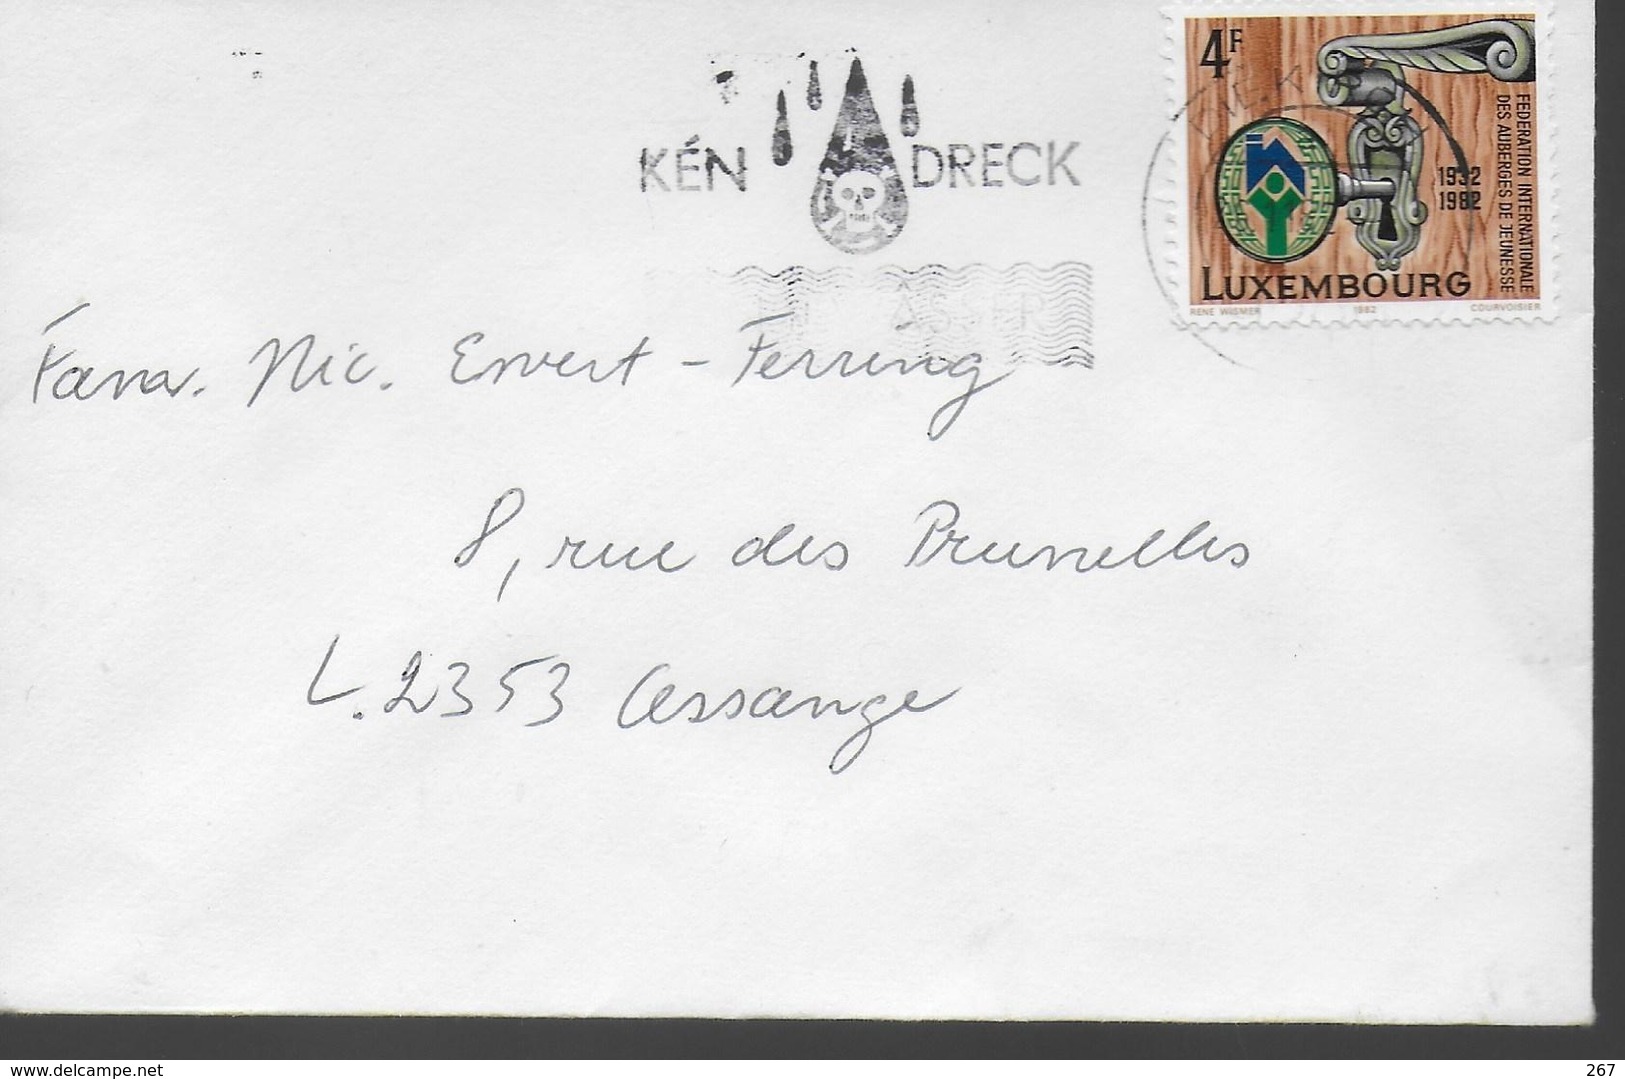 KÉN DRECK
ASSER
4F
FEDERATION INTERNATIONALE
DES AUBERGES DE JEUNESSE
1932
1982
LUXEMBOURG
RENE WISMER 1982 COURVOISIER
Fam. Nic. Ewert-Ferring
8, rue des Prunelles
L. 2353 Cessange
delcampe.net
akyra
267